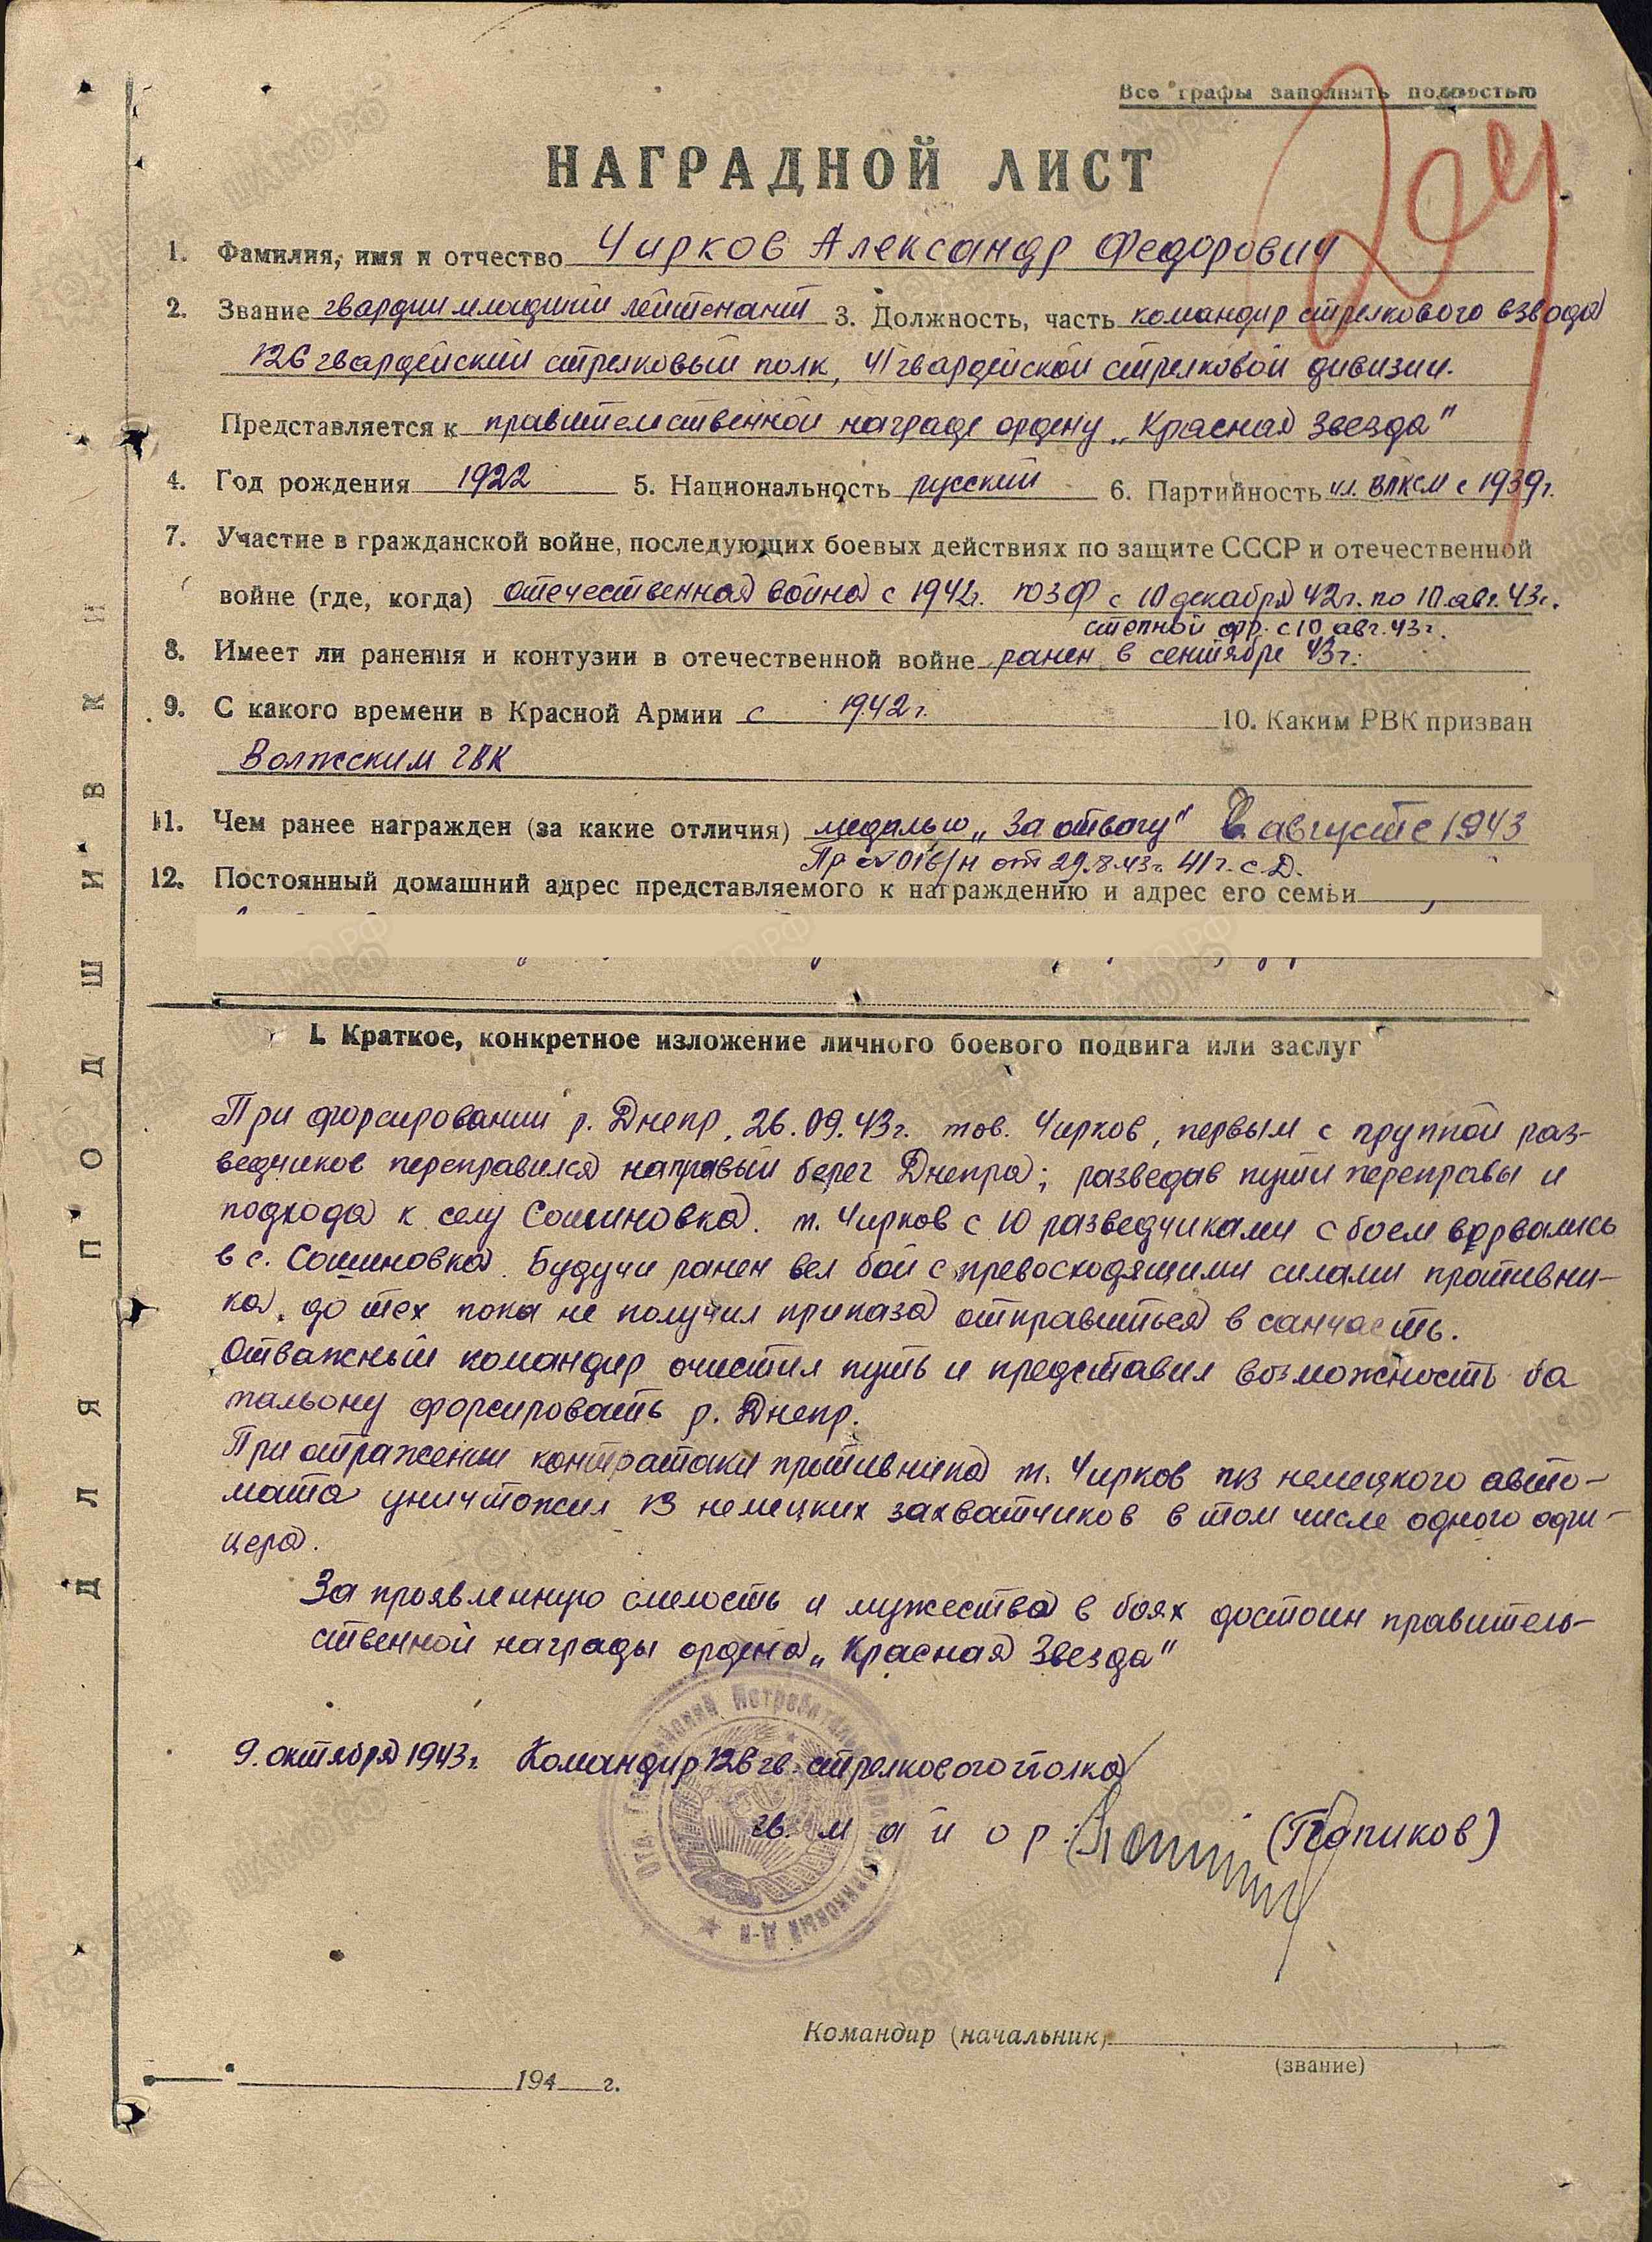 Все графы заполнять полностью
НАГРАДНОЙ ЛИСТ
1. Фамилия, имя и отчество Чирков Александр Федорович
2. Звание гвардии младший лейтенант 3. Должность, часть командир стрелкового взвода
126 гвардейский стрелковый полк, 41 гвардейской стрелковой дивизии.
Представляется к правительственной награде ордену „Красная Звезда"
4. Год рождения 1922 5. Национальность русский 6. Партийность чл. ВЛКСМ с 1939г.
7. Участие в гражданской войне, последующих боевых действиях по защите СССР и отечественной
войне (где, когда) отечественная война с 1942г. ЮЗФ с 10 декабря 42г. по 10 авг. 43г.
степной фр. с 10 авг. 43г.
8. Имеет ли ранения и контузии в отечественной войне ранен в сентябре 43г.
9. С какого времени в Красной Армии с 1942г. 10. Каким РВК призван
Волжским ГВК
11. Чем ранее награжден (за какие отличия) медалью „За отвагу" в августе 1943
Пр № 016/н от 29.8.43г. 41 г. с. Д.
12. Постоянный домашний адрес представляемого к награждению и адрес его семьи
I. Краткое, конкретное изложение личного боевого подвига или заслуг
При форсировании р. Днепр, 26.09.43г. тов. Чирков, первым с группой раз-
ведчиков переправился на правый берег Днепра; разведав пути переправы и
подхода к селу Сошиновка. т. Чирков с 10 разведчиками с боем ворвались
в с. Сошиновка. Будучи ранен вел бой с превосходящими силами противни-
ка, до тех пока не получил приказа отправиться в санчасть.
Отважный командир очистил путь и представил возможность ба
тальону форсировать р. Днепр.
При отражении контратаки противника т. Чирков из немецкого авто-
мата уничтожил 13 немецких захватчиков в том числе одного офи-
цера.
За проявленную смелость и мужество в боях достоин правитель-
ственной награды ордена „Красная Звезда"
9. октября 1943г. Командир 126 гв. стрелкового полка
гв. майор (Папиков)
Командир (начальник)
(звание)
194 г.
ДЛЯ ПОДШИВКИ